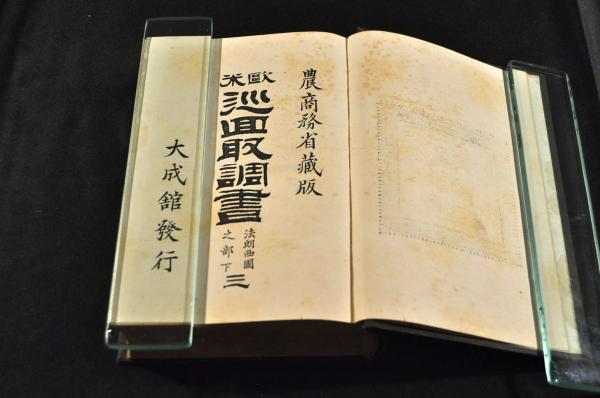 農商務省藏版
歐米
巡回取調書
法朗西國
之部下
三
大成館發行